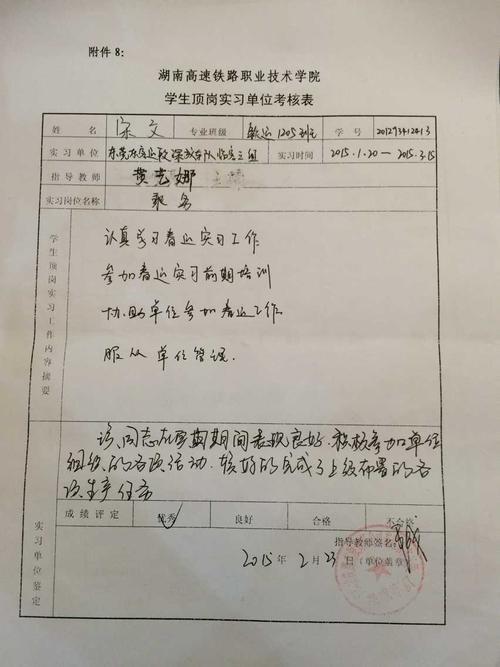 附件8:
湖南高速铁路职业技术学院
学生顶岗实习单位考核表
姓名 宋文 专业班级 1205班 学号
实习单位 实习时间 2015.1.20—2015.3.15
指导教师 黄艺娜
实习岗位名称 乘务
学生顶岗实习工作内容摘要
认真学习春运实习工作
参加春运实习前期培训
协助单位参加春运工作
服从单位管理.
实习单位鉴定
该同志在实习期间表现良好.积极参加单位
组织的各项活动.较好的完成了上级布置的各
项生产任务
成绩评定 优秀 良好 合格 不合格
指导教师签名:
2015年2月23日(单位盖章)